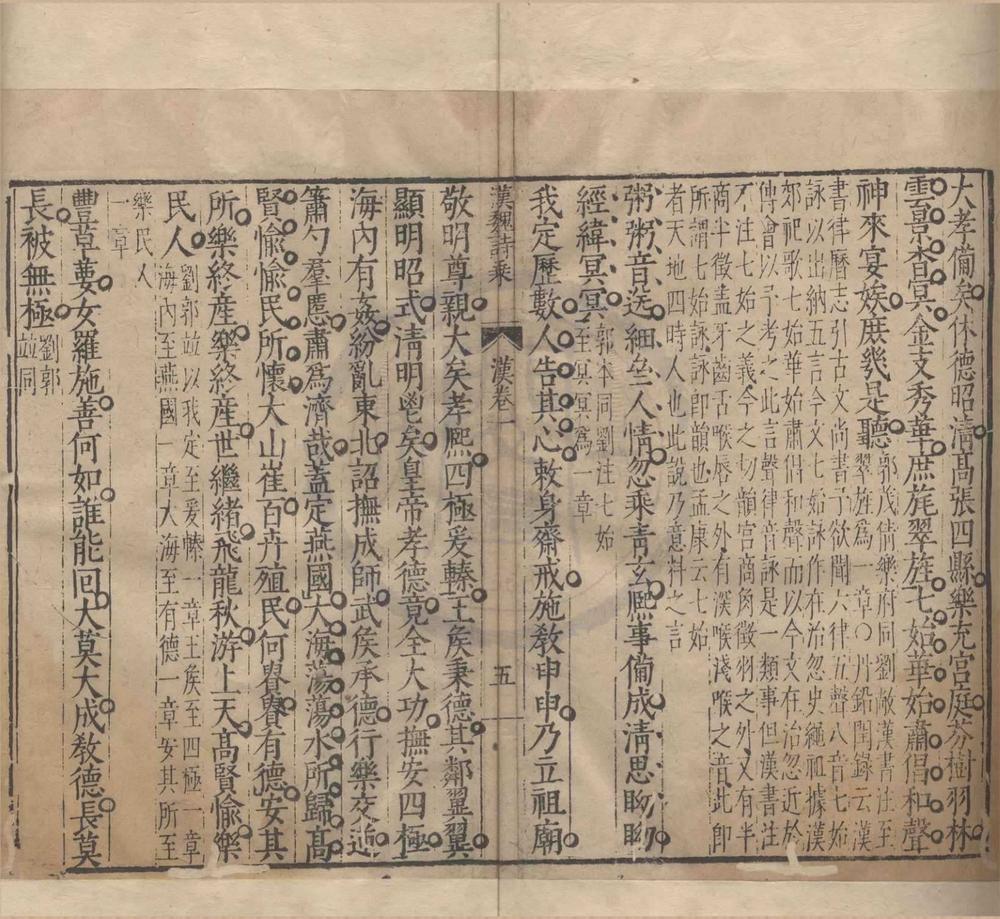 大孝備矣休德昭淸髙張四縣樂充宮庭芬樹羽林
雲景杳冥金支秀華庶旄翠旌七始華始肅倡和聲
神來宴娭庶幾是聽郭茂倩樂府同劉敞漢書注至
翠旌爲一章○丹鉛閏録云漢
書律曆志引古文尚書予欲聞六律五聲八音七始
詠以出納五言今文七始詠作在治忽史繩祖據漢
郊祀歌七始華始肅倡和聲而以今文在治忽近於
傅會以予考之此言聲律音詠是一類事但漢書注
不注七始之義今之切韻宮商角徵羽之外又有半
商半徵蓋牙齒舌喉唇之外有深喉淺喉之音此即
所謂七始詠詠即韻也孟康云七始
者天地四時人也此說乃意料之言
粥粥音送細㕘人情忽乘靑玄熙事備成淸思眑眑
經緯冥冥郭本同劉注七始
至冥冥爲一章
我定歷數人告其心敕身齋戒施敎申申乃立祖廟
漢魏詩乘
漢卷一
五
敬明尊親大矣孝熙四極爰轃王矦秉德其鄰翼翼
顯明昭式淸明鬯矣皇帝孝德竟全大功撫安四極
海內有姦紛亂東北詔撫成師武矦承德行樂交逆
簫勺羣慝肅爲濟哉蓋定燕國大海蕩蕩水所歸髙
賢愉愉民所懷大山崔百卉殖民何貴貴有德安其
所樂終産樂終産世繼緒飛龍秋游上天髙賢愉樂
民人劉郭竝以我定至爰轃一章王矦至四極一章
海內至燕國一章大海至有德一章安其所至
樂民人
一章
豐草葽女羅施善何如誰能回大莫大成敎德長莫
長被無極劉郭
竝同